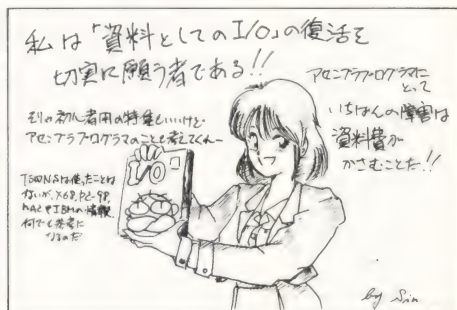 私は「資料としてのI/O」の復活を
切実に願う者である!!
アセンブラプログラマに
とって
いちばんの障害は
資料費が
かさむことだ!!
初心者用の特集もいいけど、
アセンブラプログラマのことも考えてくれー
TOWNSは使ったことは
ないが、X68,PC-98,
MACやIBMの情報
何でも参考に
なるのだ
I/O
by Sin